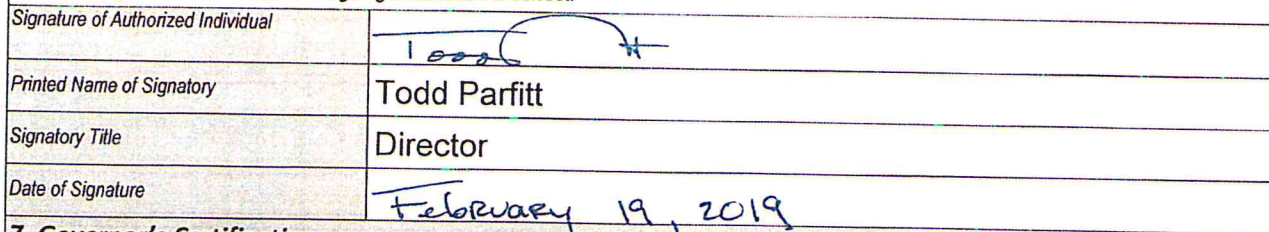 Signature of Authorized Individual
Todd
Printed Name of Signatory
Todd Parfitt
Signatory Title
Director
Date of Signature
February 19, 2019